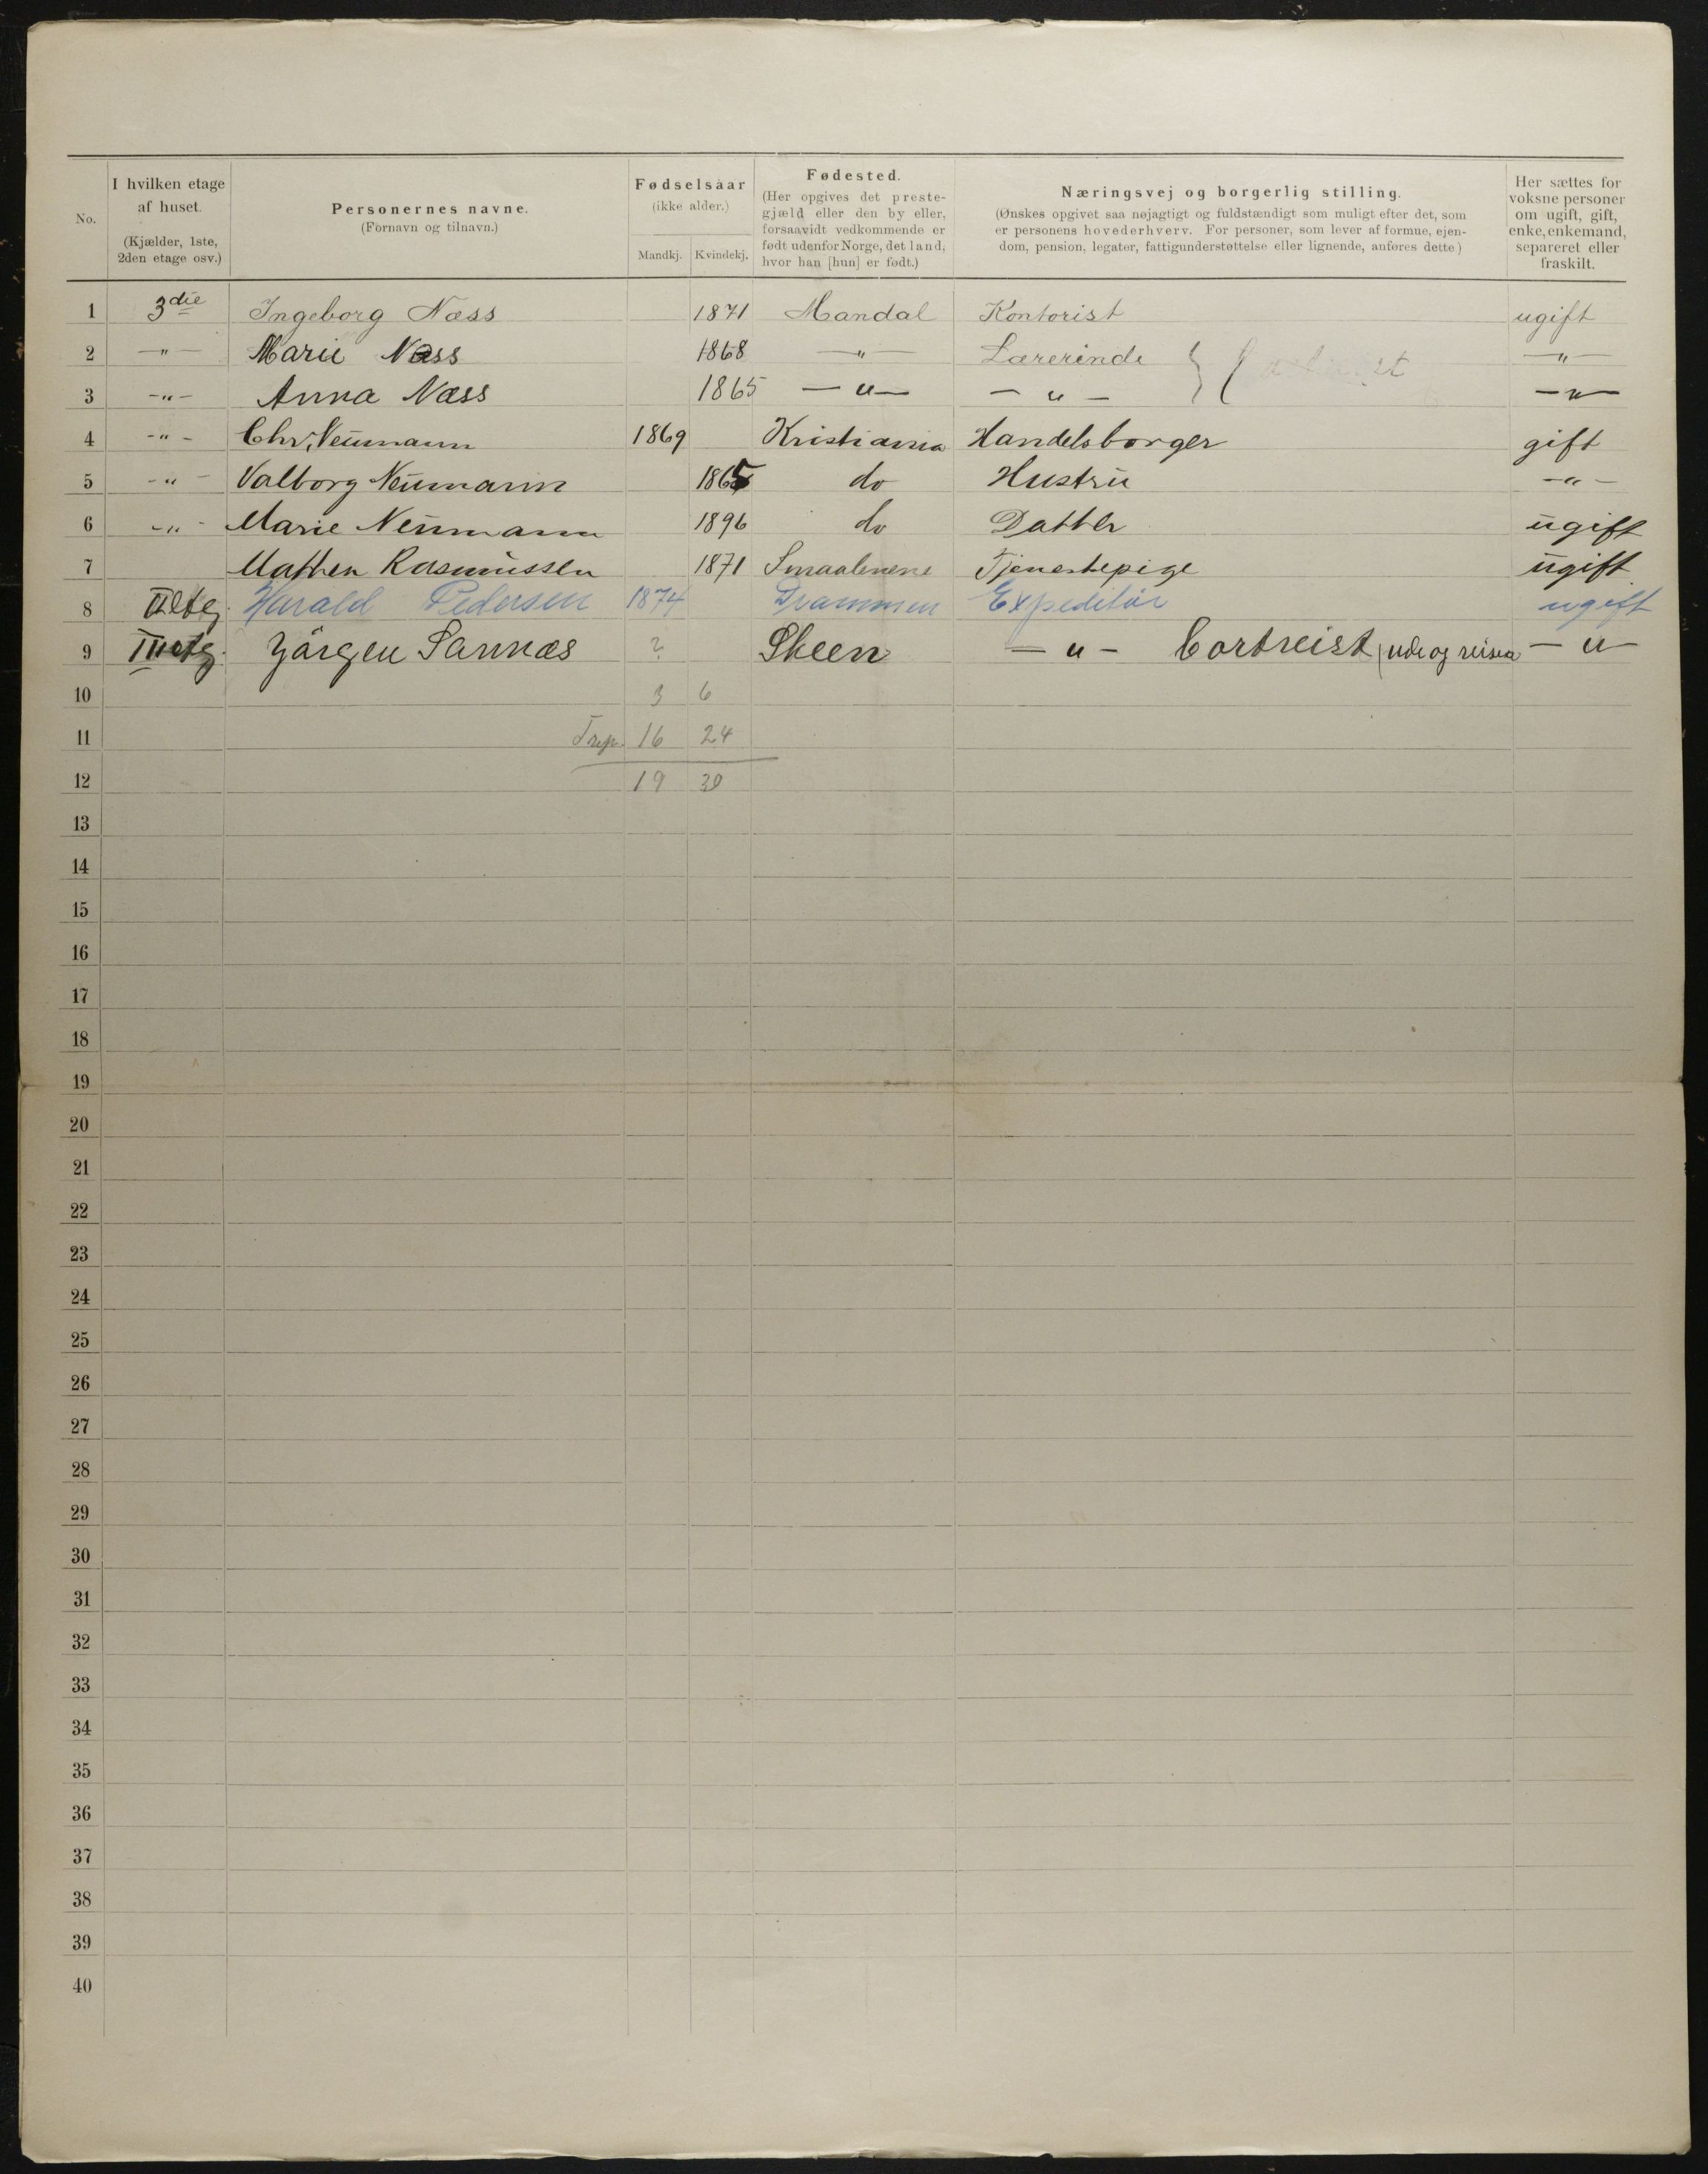 No.
I hvilken etage af huset.
(Kjælder, 1ste, 2den etage osv.)
Personernes navne.
(Fornavn og tilnavn.)
Fødselsaar
(ikke alder.)
Mandkj. Kvindekj.
Fødested.
(Her opgives det preste-
gjæld eller den by eller,
forsaavidt vedkommende er
født udenfor Norge, det land,
hvor han [hun] er født.)
Næringsvej og borgerlig stilling.
(Ønskes opgivet saa nøjagtigt og fuldstændigt som muligt efter det, som
er personens hovederhverv. For personer, som lever af formue, ejen-
dom, pension, legater, fattigunderstøttelse eller lignende, anføres dette)
Her sættes for
voksne personer
om ugift, gift,
enke, enkemand,
separeret eller
fraskilt.
1 3die Ingeborg Næss 1871 Mandal Kontorist ugift
2 —"— Marie Næss 1868 —"— Lærerinde —"—
3 —"— Anna Næss 1865 —"— —"— —"—
4 —"— Chr. Neumann 1869 Kristiania Handelsborger gift
5 —"— Valborg Neumann 1865 do Hustru —"—
6 —"— Marie Neumann 1896 do Datter ugift
7 Mathea Rasmussen 1871 Smaalenene Tjenestepige ugift
8 II etg. Harald Pedersen 1874 Drammen Expeditør ugift
9 III etg. Jørgen Sannæs ? Skeen —"— Bortreist (ude og reiser —"—
10 3 6
11 Trsp. 16 24
12 19 30
13
14
15
16
17
18
19
20
21
22
23
24
25
26
27
28
29
30
31
32
33
34
35
36
37
38
39
40